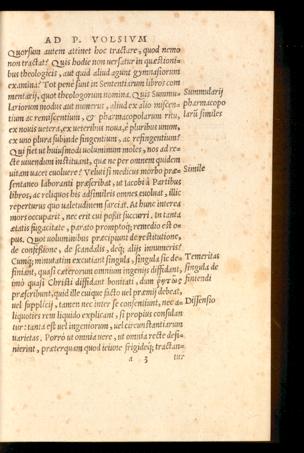 AD P. VOLSIVM
Quorsum autem attinet hoc tractare, quod nemo
non tractat? Quis hodie non uersatur in quæstioni-
bus theologicis, aut quid aliud agunt gymnasiorum
examina? Tot pene sunt in Sententiarum libros com
mentarij, quot theologorum nomina. Quis Summu-
lariorum modus aut numerus, aliud ex alio miscen-
tium ac remiscentium, & pharmacopolarum ritu,
ex nouis uetera, ex ueteribus noua, è pluribus unum,
ex uno plura subinde fingentium, ac refingentium?
Qui fiet ut huiusmodi uoluminum moles, nos ad re-
cte uiuendum instituant, quæ ne per omnem quidem
uitam uacet euoluere? Veluti si medicus morbo præ-
sentaneo laboranti præscribat, ut Iacobi à Partibus
libros, ac reliquos his adsimileis omnes euoluat, illic
reperturus quo ualetudinem sarciat. At hunc interea
mors occuparit, nec erit cui possit succurri. In tanta
ætatis fugacitate, parato promptoq; remedio est o-
pus. Quot uoluminibus præcipiunt de restitutione,
de confessione, de scandalis, deq; alijs innumeris?
Cumq; minutatim excutiant singula, singula sic de-
finiant, quasi cæterorum omnium ingenijs diffidant,
imò quasi Christi diffidant bonitati, dum
præscribunt, quid ille cuique facto uel præmij debeat,
uel supplicij, tamen nec inter se consentiunt, nec a-
liquoties rem liquido explicant, si propius consulan
tur: tanta est uel ingeniorum, uel circunstantiarum
uarietas. Porrò ut omnia uere, ut omnia recte defi-
nierint, præterquam quod ieiune frigideq; tractan-
a 3 tur
Summularij
pharmacopo
larũ similes
Simile
Temeritas
singula de
finiendi
Dissensio